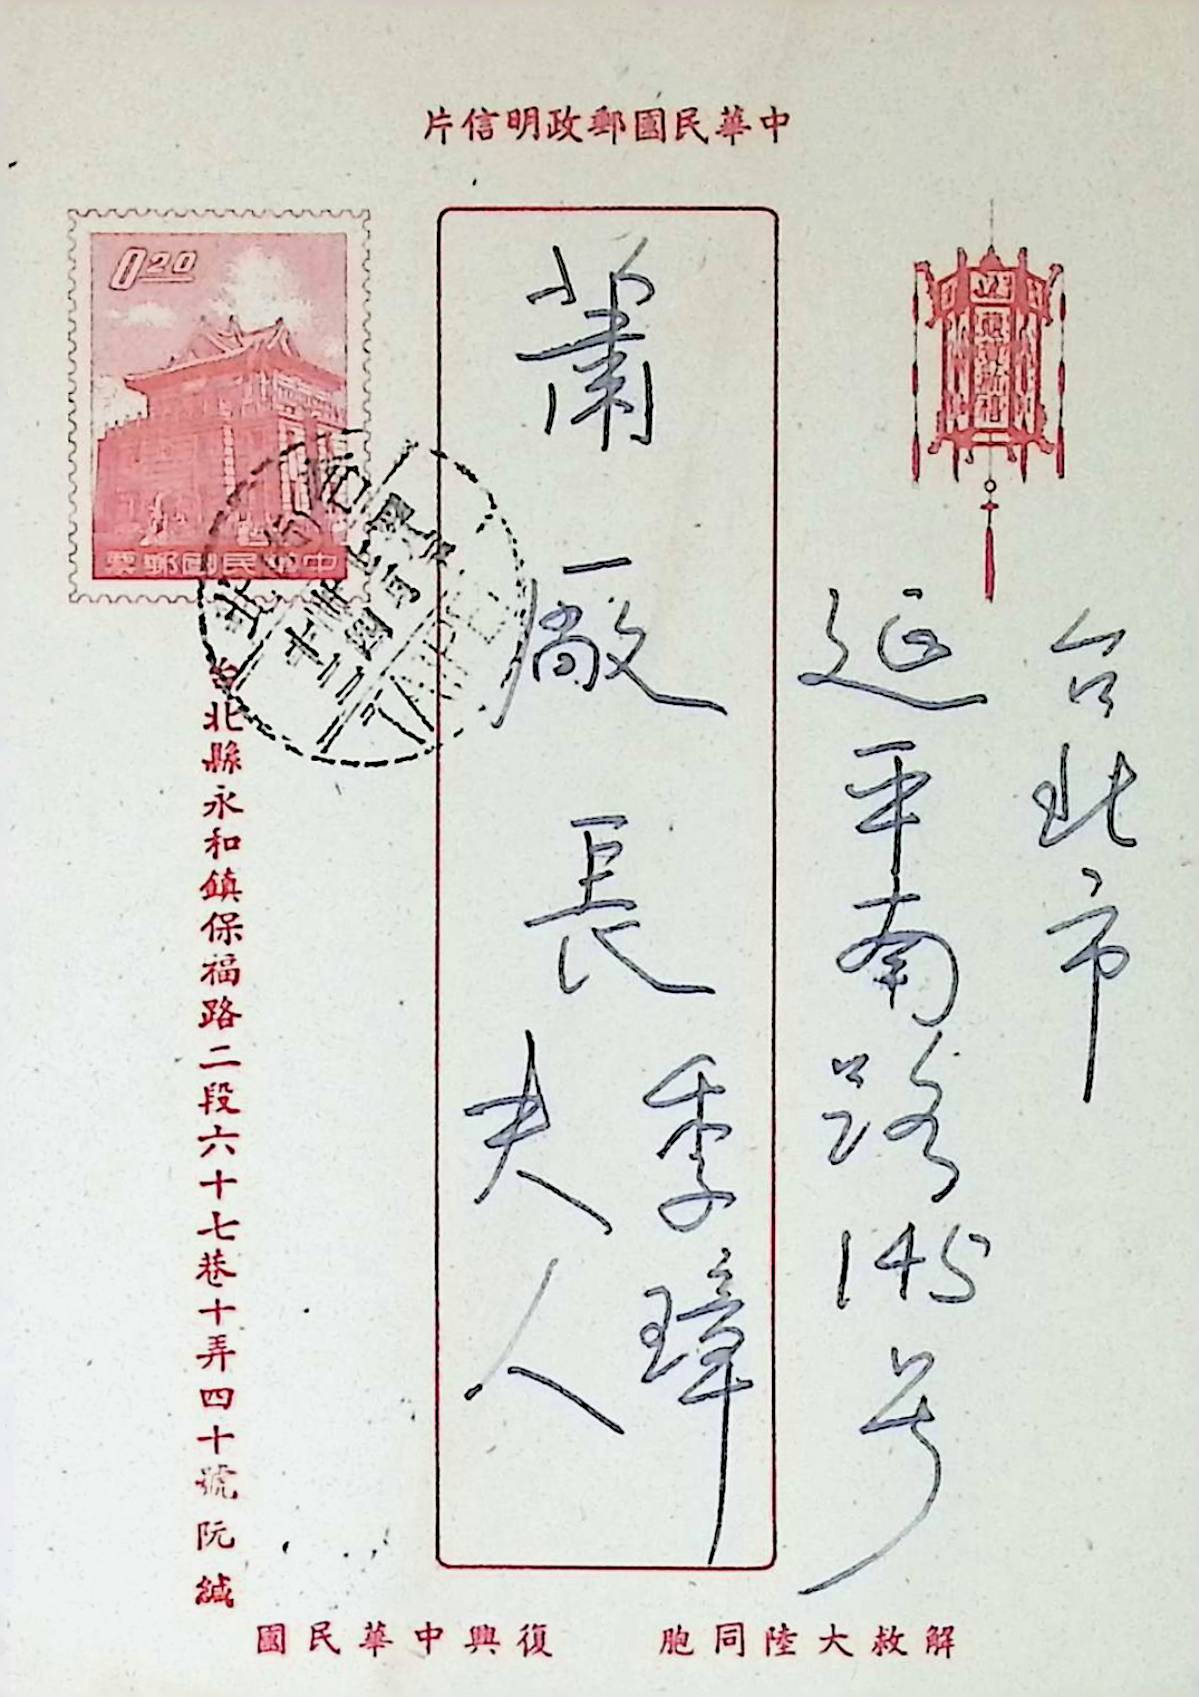 中華民國郵政明信片
台北市
延平南路145号
蕭廠長季璋
夫人
0.20
中華民國郵票
台北縣永和鎮保福路二段六十七巷十弄四十號阮緘
解救大陸同胞
復興中華民國